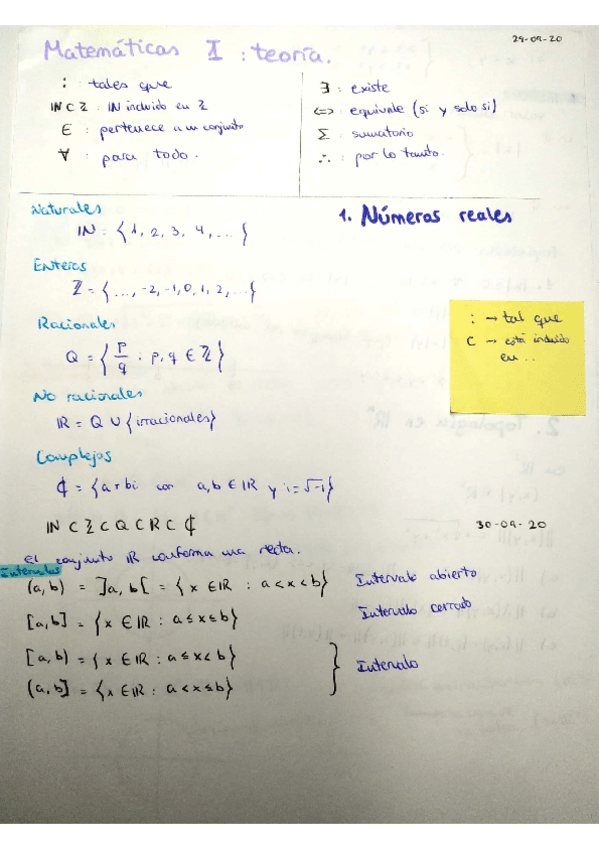 29-09-20
Matemáticas I : teoría.
: : tales que
IN C Z : IN incluido en Z
∈ : pertenece a un conjunto
∀ : para todo.
∃ : existe
<=> : equivale (si y solo si)
Σ : sumatorio
∴ : por lo tanto.
1. Números reales
Naturales
IN = {1, 2, 3, 4, ...}
Enteros
Z = {..., -2, -1, 0, 1, 2, ...}
Racionales
Q = {p/q : p, q ∈ Z}
: → tal que
C → está incluido
en ..
No racionales
IR = Q ∪ {irracionales}
Complejos
₵ = {a + bi con a, b ∈ IR y i = √-1}
IN C Z C Q C R C ₵
30-09-20
El conjunto IR conforma una recta.
Intervalos
(a, b) = ]a, b[ = {x ∈ IR : a < x < b} Intervalo abierto
[a, b] = {x ∈ IR : a ≤ x ≤ b} Intervalo cerrado
[a, b) = {x ∈ IR : a ≤ x < b}
(a, b] = {x ∈ IR : a < x ≤ b}
} Intervalo